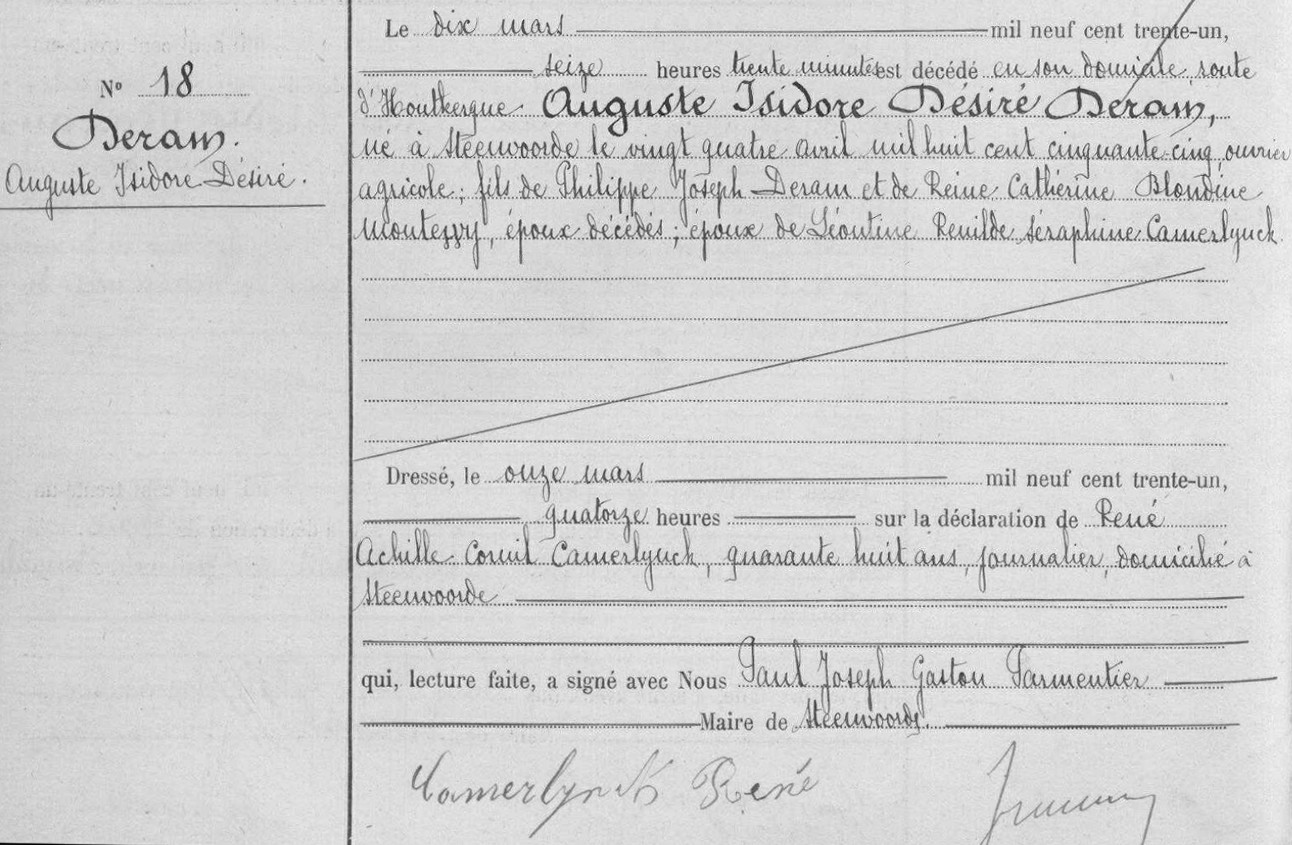 Nº 18
Deram.
Auguste Isidore Désiré.
Le dix mars mil neuf cent trente-un,
seize heures trente minutes est décédé en son domicile route
d'Houtkerque Auguste Isidore Désiré Deram,
né à Steenvoorde le vingt quatre avril mil huit cent cinquante-cinq ouvrier
agricole ; fils de Philippe Joseph Deram et de Reine Catherine Blondine
époux décédés ; époux de Léontine Renilde Séraphine Camerlynck.
Dressé, le onze mars mil neuf cent trente-un,
quatorze heures sur la déclaration de René
Achille Cornil Camerlynck, quarante huit ans, journalier, domicilié à
Steenvoorde
qui, lecture faite, a signé avec Nous Paul Joseph Gaston Parmentier
Maire de Steenvoorde.
Camerlynck René